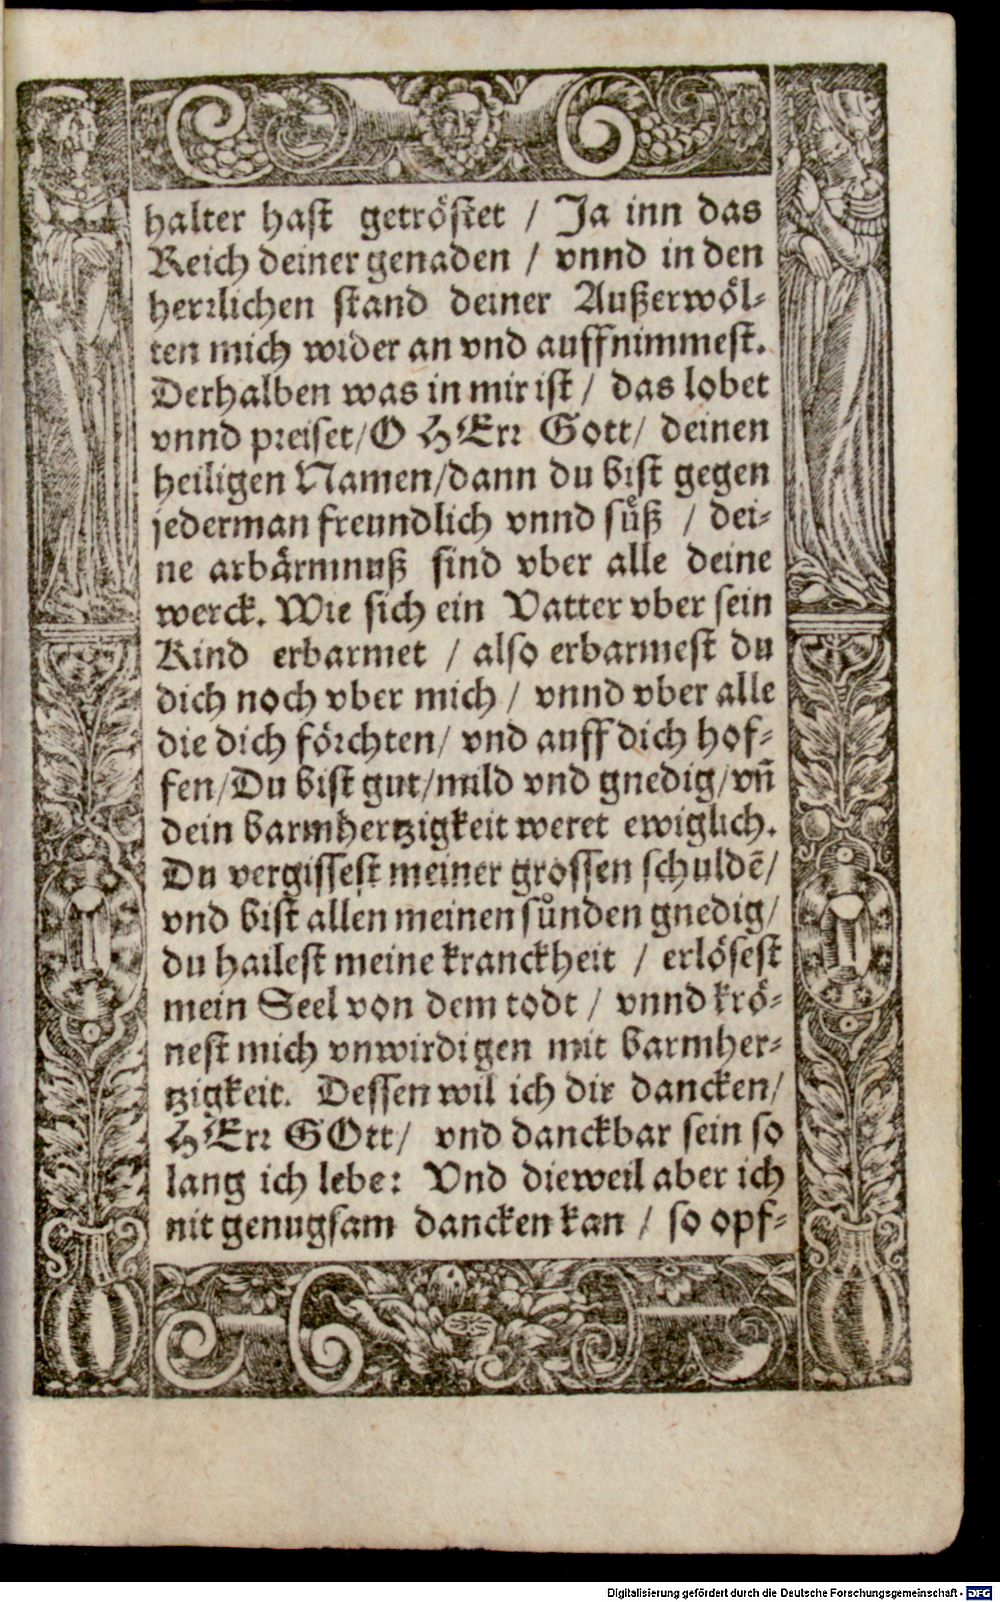 halter hast getröstet / Ja inn das
Reich deiner genaden / vnnd in den
herrlichen stand deiner Außerwöl-
ten mich wider an vnd auffnimmest.
Derhalben was in mir ist / das lobet
vnnd preiset/ O HErr Gott/ deinen
heiligen Namen/dann du bist gegen
jederman freundlich vnnd süß / dei-
ne arbärmnuß sind vber alle deine
werck. Wie sich ein Vatter vber sein
Kind erbarmet / also erbarmest du
dich noch vber mich / vnnd vber alle
die dich förchten/ vnd auff dich hof-
fen/Du bist gut/mild vnd gnedig/vn̄
dein barmhertzigkeit weret ewiglich.
Du vergissest meiner grossen schuldē/
vnd bist allen meinen sünden gnedig/
du hailest meine kranckheit / erlösest
mein Seel von dem todt / vnnd krö-
nest mich vnwirdigen mit barmher-
tzigkeit. Dessen wil ich dir dancken/
HErr GOtt/ vnd danckbar sein so
lang ich lebe: Vnd dieweil aber ich
nit genugsam dancken kan / so opf-
Digitalisierung gefördert durch die Deutsche Forschungsgemeinschaft - DFG